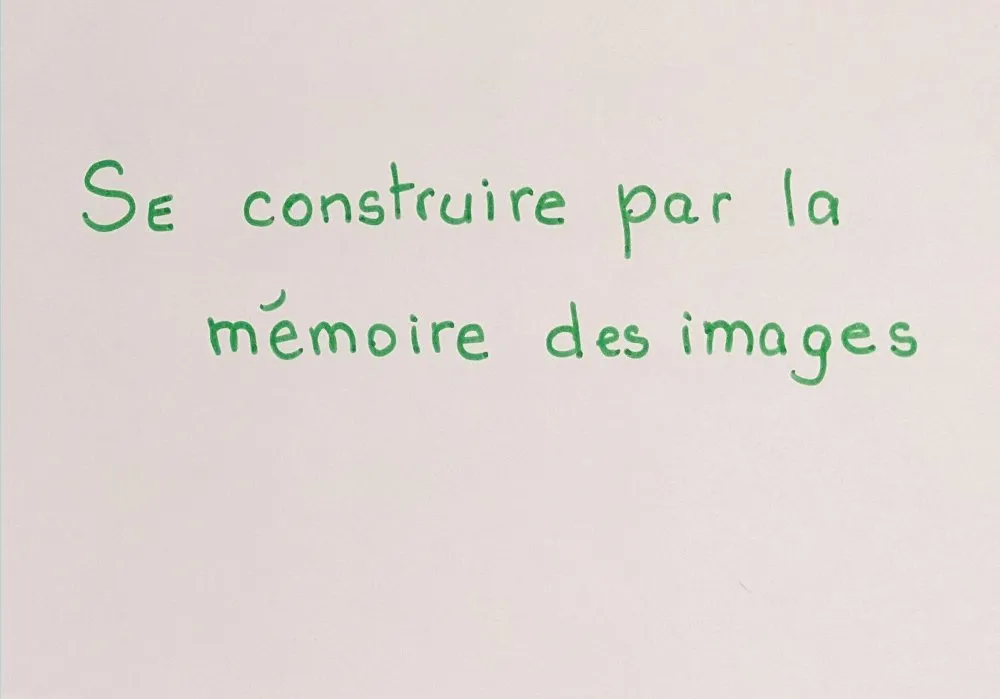 Se construire par la
mémoire des images